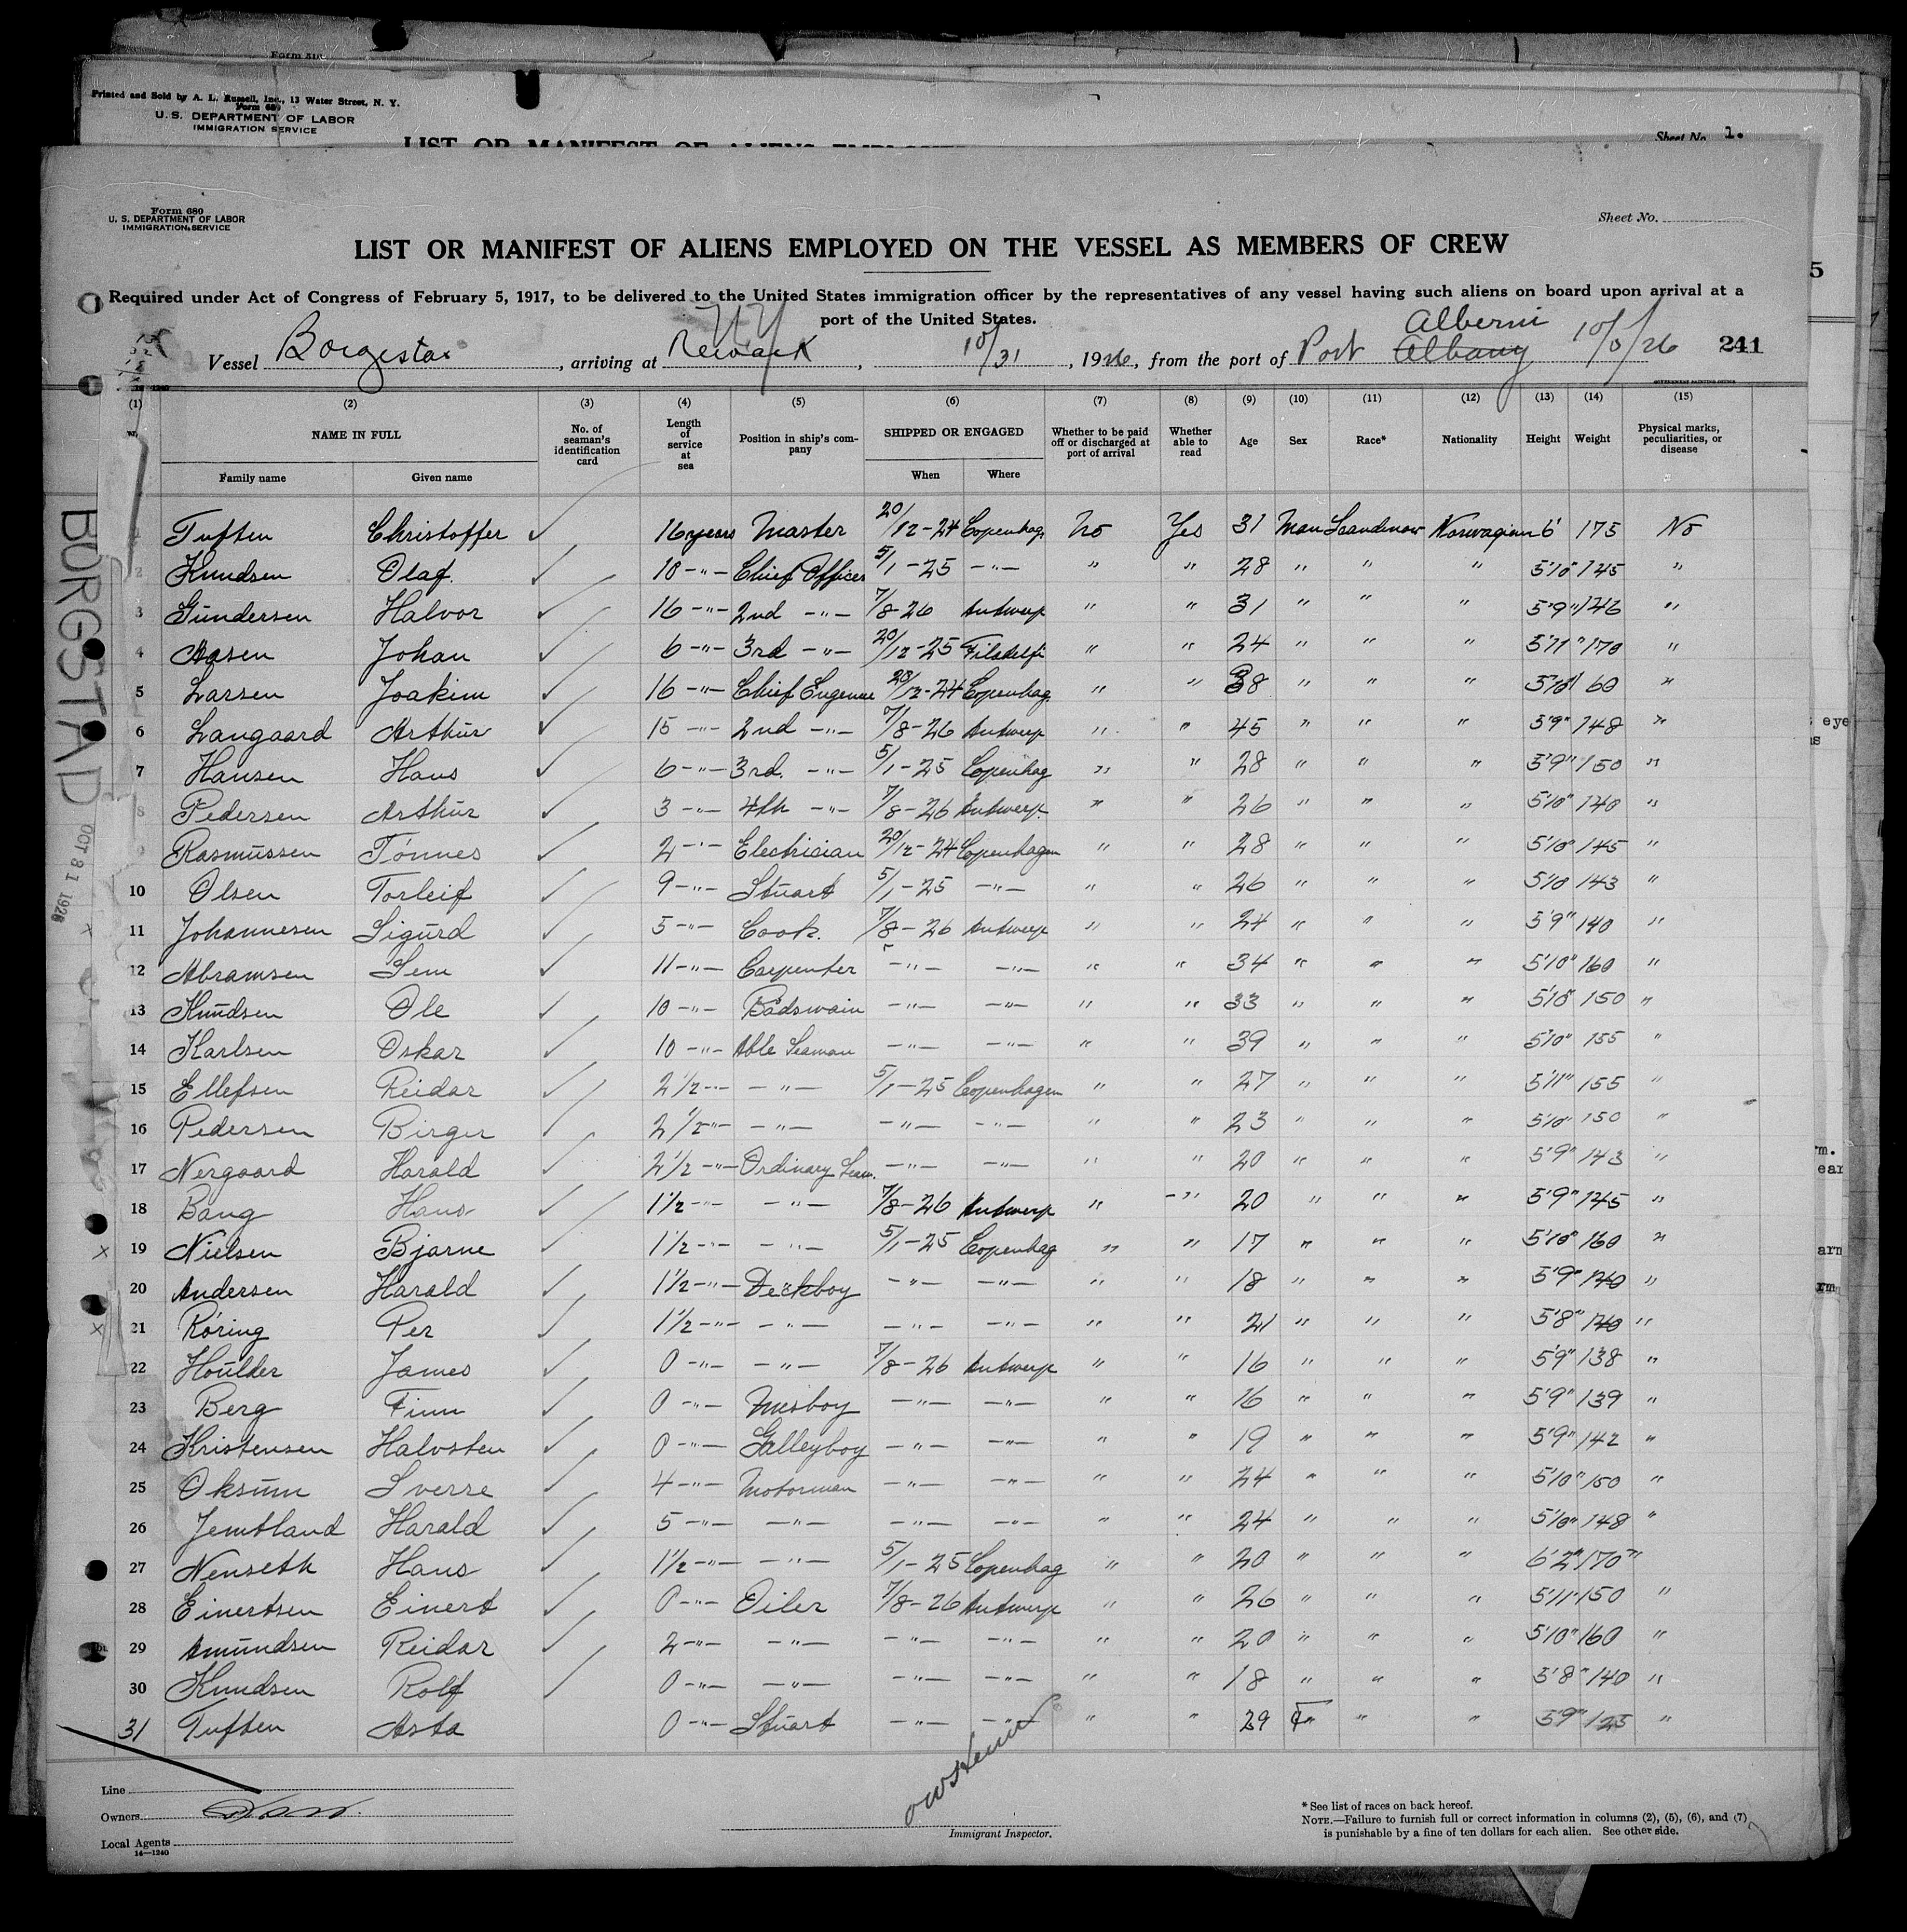 Form 510
Printed and Sold by A. L. Russell, Inc., 13 Water Street, N. Y.
Form 689
U. S. DEPARTMENT OF LABOR
IMMIGRATION SERVICE
Sheet No. 1.
LIST OR MANIFEST OF ALIENS
Form 680
U. S. DEPARTMENT OF LABOR
IMMIGRATION SERVICE
Sheet No.
LIST OR MANIFEST OF ALIENS EMPLOYED ON THE VESSEL AS MEMBERS OF CREW
Required under Act of Congress of February 5, 1917, to be delivered to the United States immigration officer by the representatives of any vessel having such aliens on board upon arrival at a
port of the United States.
NY Alberni
Vessel Borgestad, arriving at Newark, 10/31, 1926, from the port of Port Albany 10/0/26 241
GOVERNMENT PRINTING OFFICE
(1) (2) (3) (4) (5) (6) (7) (8) (9) (10) (11) (12) (13) (14) (15)
No. NAME IN FULL Family name Given name No. of seaman's identification card Length of service at sea Position in ship's company SHIPPED OR ENGAGED When Where Whether to be paid off or discharged at port of arrival Whether able to read Age Sex Race* Nationality Height Weight Physical marks, peculiarities, or disease
1 Tuften Christoffer ✓ 16 years Master 20/12-24 Copenhag. No Yes 31 Man Scandinav Norwegian 6' 175 No
2 Knudsen Olaf. ✓ 10 -"- Chief Officer 5/1-25 -"- " " 28 " " " 5'10" 145 "
3 Gundersen Halvor ✓ 16 -"- 2nd -"- 7/8-26 Antwerp " " 31 " " " 5'9" 146 "
4 Aasen Johan ✓ 6 -"- 3rd -"- 20/12-25 Filadelfi " " 24 " " " 5'11" 170 "
5 Larsen Joakim ✓ 16 -"- Chief Engenue 20/12-24 Copenhag. " " 38 " " " 5'10" 160 "
6 Langaard Arthur ✓ 15 -"- 2nd -"- 7/8-26 Antwerp " " 45 " " " 5'9" 148 "
7 Hansen Hans ✓ 6 -"- 3rd. -"- 5/1-25 Copenhag " " 28 " " " 5'9" 150 "
8 Pedersen Arthur ✓ 3 -"- 4th -"- 7/8-26 Antwerp. " " 26 " " " 5'10" 140 "
9 Rasmussen Tónnes ✓ 2 -"- Electrician 20/12-24 Copenhagen " " 28 " " " 5'10" 145 "
10 Olsen Torleif ✓ 9 -"- Stuart 5/1-25 -"- " " 26 " " " 5'10 143 "
11 Johannesen Sigurd ✓ 5 -"- Cook. 7/8-26 Antwerp " " 24 " " " 5'9" 140 "
12 Abramsen Sem ✓ 11 -"- Carpenter -"- -"- " " 34 " " " 5'10" 160 "
13 Knudsen Ole ✓ 10 -"- Bådswain -"- -"- " " 33 " " " 5'10" 150 "
14 Karlsen Oskar ✓ 10 -"- Able Seaman -"- -"- " " 39 " " " 5'10" 155 "
15 Ellefsen Reidar ✓ 2 1/2 -"- -"- 5/1-25 Copenhagen " " 27 " " " 5'11" 155 "
16 Pedersen Birger ✓ 2 1/2 -"- -"- -"- -"- " " 23 " " " 5'10" 150 "
17 Nergaard Harald ✓ 2 1/2 -"- Ordinary Seam. -"- -"- " " 20 " " " 5'9" 143 "
18 Bang Hans ✓ 1 1/2 -"- -"- 7/8-26 Antwerp " -"- 20 " " " 5'9" 145 "
19 Nielsen Bjarne ✓ 1 1/2 -"- -"- 5/1-25 Copenhag " " 17 " " " 5'10" 160 "
20 Andersen Harald ✓ 1 1/2 -"- Deckboy -"- -"- " " 18 " " " 5'9" 140 "
21 Róring Per ✓ 1 1/2 -"- -"- -"- -"- " " 21 " " " 5'8" 140 "
22 Houlder James ✓ 0 -"- -"- 7/8-26 Antwerp " " 16 " " " 5'9" 138 "
23 Berg Finn ✓ 0 -"- Mesboy -"- -"- " " 16 " " " 5'9" 139 "
24 Kristensen Halvsten ✓ 0 -"- Galleyboy -"- -"- " " 19 " " " 5'9" 142 "
25 Oksum Sverre ✓ 4 -"- Motorman -"- -"- " " 24 " " " 5'10" 150 "
26 Jemtland Harald ✓ 5 -"- -"- -"- -"- " " 24 " " " 5'10" 148 "
27 Nenseth Hans ✓ 1 1/2 -"- -"- 5/1-25 Copenhag " " 20 " " " 6'2" 170 "
28 Einertsen Einert ✓ 0 -"- Oiler 7/8-26 Antwerp " " 26 " " " 5'11" 150 "
29 Amundsen Reidar ✓ 2 -"- -"- -"- -"- " " 20 " " " 5'10" 160 "
30 Knudsen Rolf ✓ 0 -"- -"- -"- -"- " " 18 " " " 5'8" 140 "
31 Tuften Asta 0 -"- Stuart -"- -"- " " 29 F " " 5'9" 125 "
BORGSTAD
OCT 31 1926
Line
Owners
Local Agents
14—1240
Immigrant Inspector.
* See list of races on back hereof.
NOTE.—Failure to furnish full or correct information in columns (2), (5), (6), and (7)
is punishable by a fine of ten dollars for each alien. See other side.